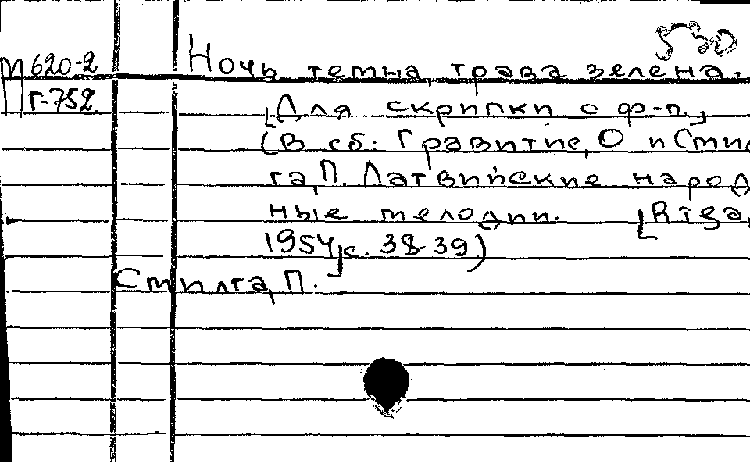 530
П 620-2
Г-752
Ночь темна, трава зелена.
[Для скрипки с ф-п.]
(В сб: Гравитис, О и Стил
га, П. Латвийские народ
ные мелодии. [Riga,
1954] с. 38-39)
Стилга, П.